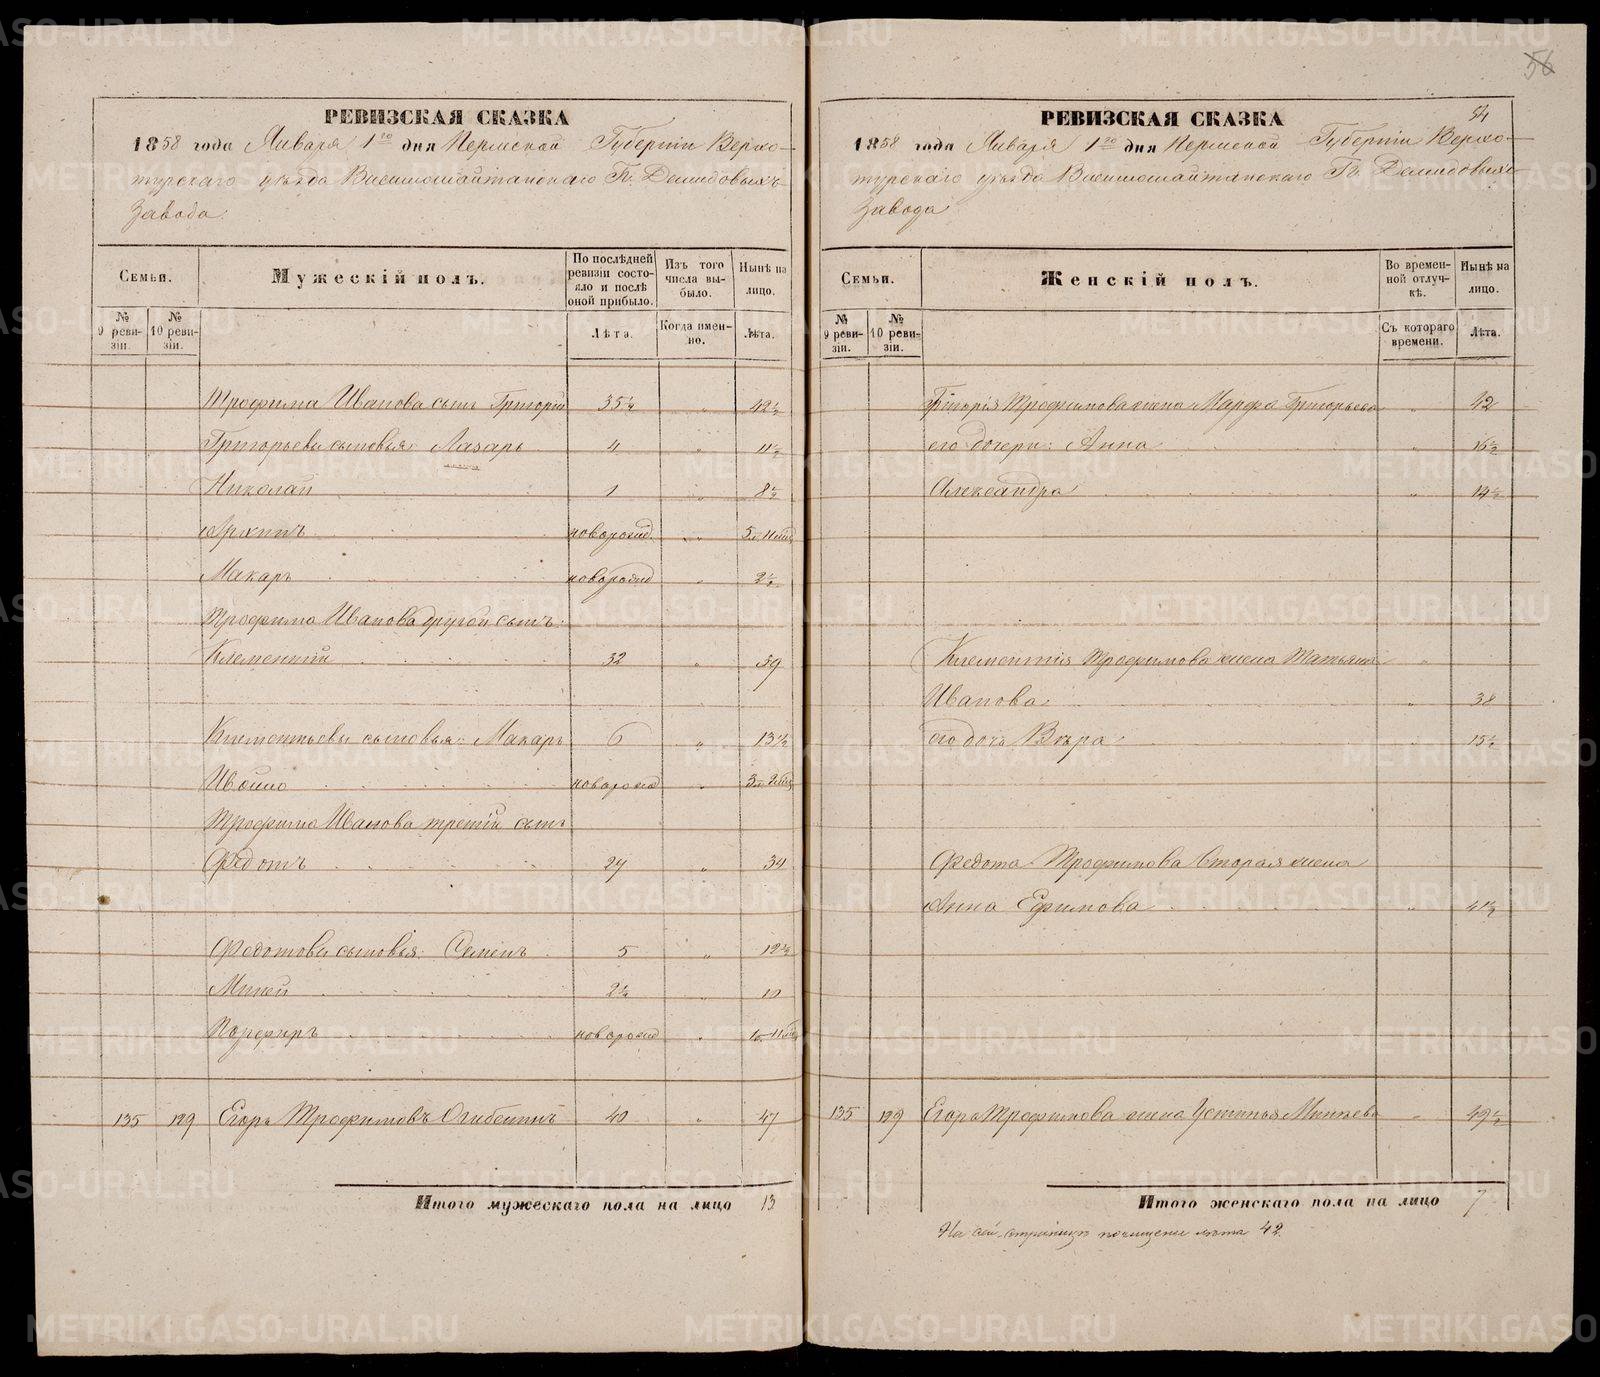 56
РЕВИЗСКАЯ СКАЗКА
1858 года Января 1го дня Пермской Губернiи Верхо-
турскаго уѣзда Висимошайтанскаго Гг. Демидовыхъ
Завода.
Семьи.
Мужескiй полъ.
По послѣдней ревизiи состояло и послѣ оной прибыло.
Изъ того числа выбыло.
Нынѣ на лицо.
№ 9 ревизiи.
№ 10 ревизiи.
Лѣта.
Когда именно.
Лѣта.
Трофима Иванова сынъ Григорiй 35½ " 42½
Григорьевы сыновья: Лазарь 4 " 11½
Николай 1 " 8½
Архипъ новорожд. " 5 л. 11 мѣс.
Макаръ новорожд " 2½
Трофима Иванова другой сынъ
Клементiй 32 " 39
Клементьевы сыновья: Макаръ 6 " 13½
Изоимо новорожд "
Трофима Иванова третiй сынъ
Федотъ 27 " 34
Федотовы сыновья: Семенъ 5 " 12½
Миней 2½ " 10
Порфиръ новорожд "
135 129 Егоръ Трофимовъ Огибенинъ 40 " 47
Итого мужескаго пола на лицо 13
54
РЕВИЗСКАЯ СКАЗКА
1858 года Января 1го дня Пермской Губернiи Верхо-
турскаго уѣзда Висимошайтанскаго Гг. Демидовыхъ
Завода
Семьи.
Женскiй полъ.
Во временной отлучкѣ.
Нынѣ на лицо.
№ 9 ревизiи.
№ 10 ревизiи.
Съ котораго времени.
Лѣта.
Григорiя Трофимова жена Марфа Григорьева " 42
его дочери: Анна " 16½
Александра " 14½
Клементiя Трофимова жена Татьяна "
Иванова " 38
его дочь Вѣра " 15½
Федота Трофимова вторая жена
Анна Ефимова " 41½
135 129 Егора Трофимова жена Устинья Минѣева " 49½
Итого женскаго пола на лицо 7
На сей страницѣ почищены лѣта 42.
METRIKI.GASO-URAL.RU